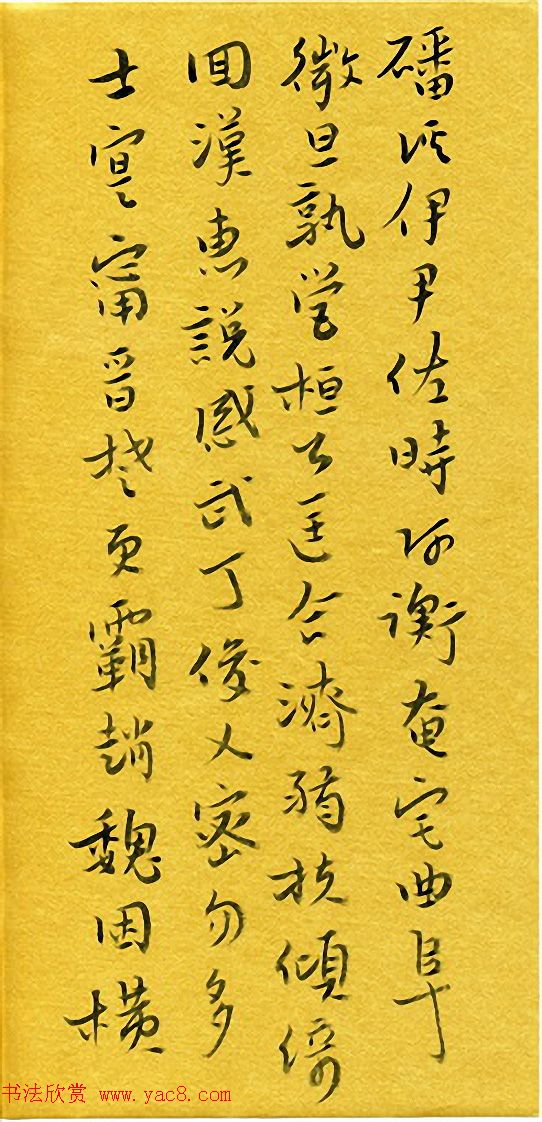 磻溪伊尹佐時阿衡奄宅曲阜
微旦孰營桓公匡合濟弱扶傾綺
回漢惠說感武丁俊乂密勿多
士寔甯晉楚更霸趙魏困橫
书法欣赏 www.yac8.com